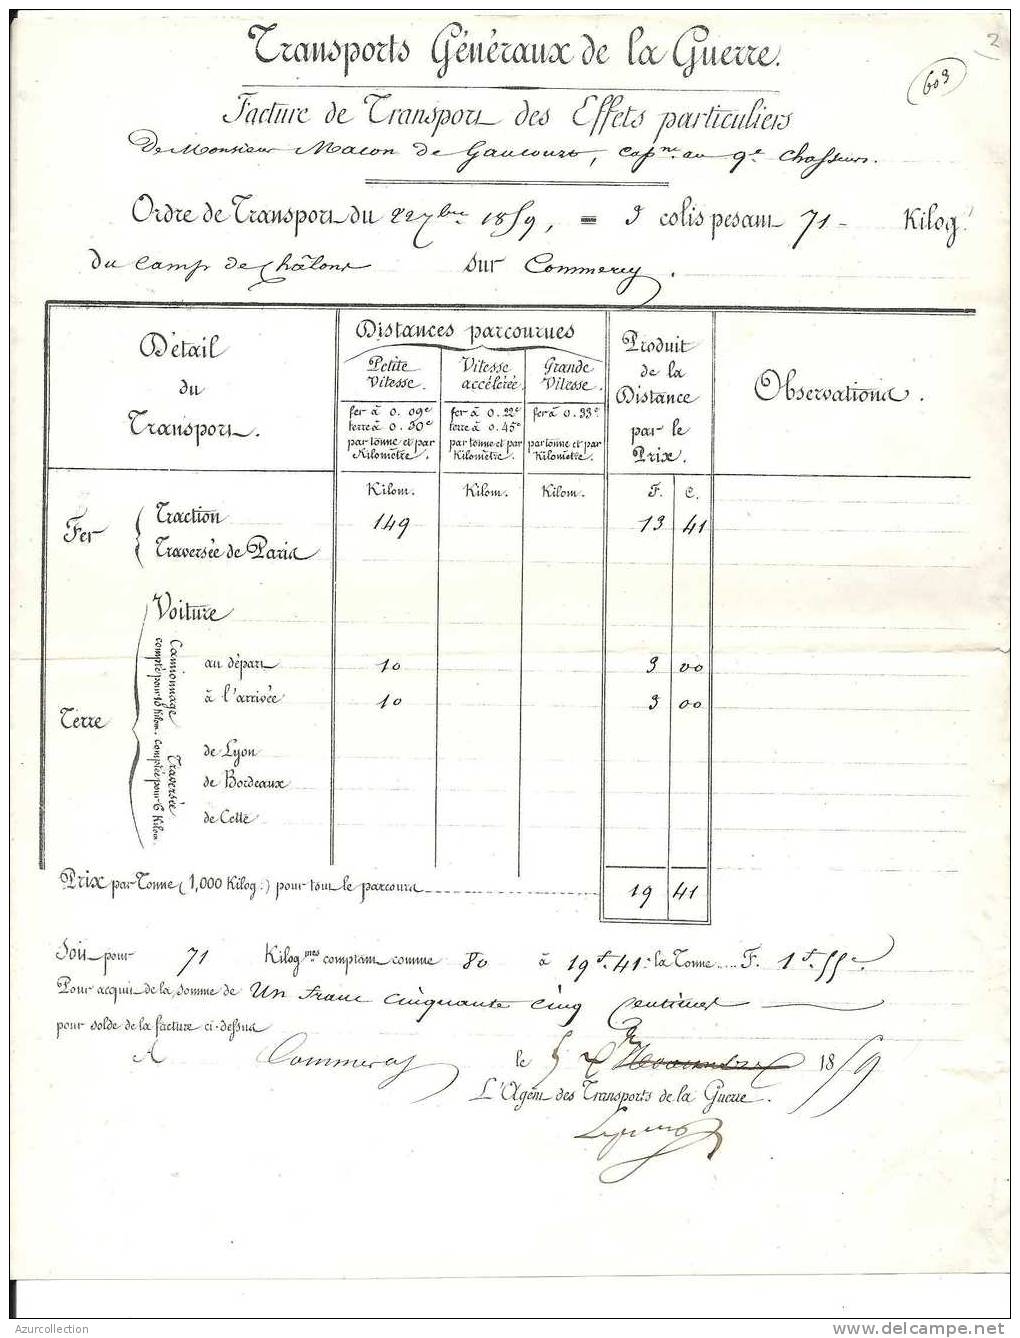 2
603
Transports Généraux de la Guerre.
Facture de Transport des Effets particuliers
De Monsieur Macon de Gaucourt, capne au 9e Chasseurs.
Ordre de Transport du 22 7bre 1859, = 3 colis pesant 71 - Kilog.
du camp de Châlons sur Commercy.
Détail du Transport.
Distances parcourues
Petite Vitesse.
fer à 0.09c
terre à 0.30c
par tonne et par Kilomètre.
Vitesse accélérée.
fer à 0.22c
terre à 0.45c
par tonne et par Kilomètre.
Grande Vitesse.
fer à 0.33c
par tonne et par Kilomètre.
Produit de la Distance par le Prix.
Observations.
Kilom. Kilom. Kilom. F. C.
Fer
Traction 149 13 41
Traversée de Paris
Terre
Voiture
Camionnage compté pour 10 Kilom.
au départ 10 3 00
à l'arrivée 10 3 00
Traversée comptée pour 6 Kilom.
de Lyon
de Bordeaux
de Cette
Prix par Tonne (1,000 Kilog.) pour tout le parcours 19 41
Soit pour 71 Kilog.mes comptant comme 80 à 19f.41c la Tonne.... F. 1f.55c.
Pour acquit de la somme de Un Franc cinquante cinq centimes
pour solde de la facture ci-dessus
A Commercy le 5 1859
L'Agent des Transports de la Guerre.
Azurcollection
www.delcampe.net